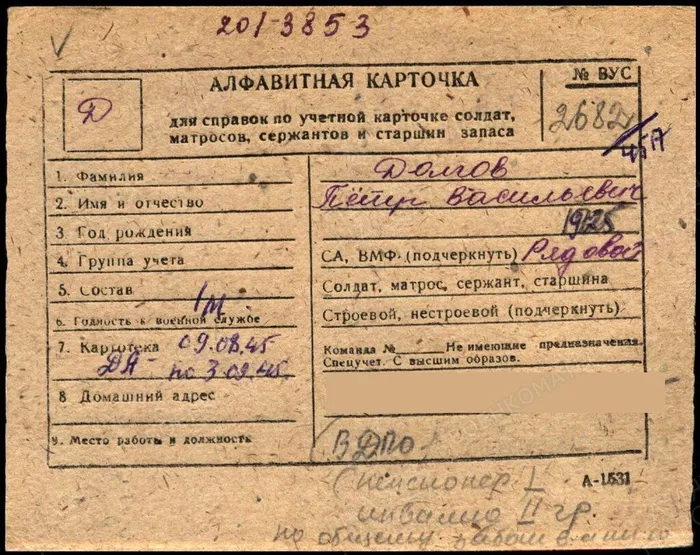 201-3853
АЛФАВИТНАЯ КАРТОЧКА
№ ВУС
Д
для справок по учетной карточке солдат,
матросов, сержантов и старшин запаса
2682
45П
1. Фамилия
Долгов
2. Имя и отчество
Пётр Васильевич
3. Год рождения
1925
4. Группа учета
СА, ВМФ (подчеркнуть) Рядовой
5. Состав
Солдат, матрос, сержант, старшина
6. Годность к военной службе
Строевой, нестроевой (подчеркнуть)
7. Картотека 09.08.45
Команда № Не имеющие предназначения.
Спецучет. С высшим образов.
ДА- по 3.09.45.
8 Домашний адрес
9. Место работы и должность
ВДПО
А-1531
Пенсионер I
инвалид II гр.
по общему заболеванию